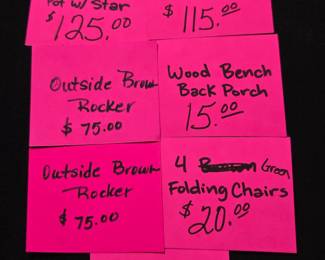 Pot w/ Star
$125.00
$115.00
Outside Brown
Rocker
$ 75.00
Wood Bench
Back Porch
15.00
Outside Brown
Rocker
$ 75.00
4 Green
Folding Chairs
$20.00